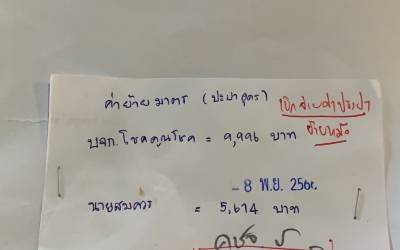 ค่าย้ายมาตร (ประปาสูตร) เบิกจ่ายค่าประปา
บจก.โชคคูณโชค = 9,996 บาท ย้ายหม้อ
- 8 พ.ย. 256
นายสมควร = 5,614 บาท